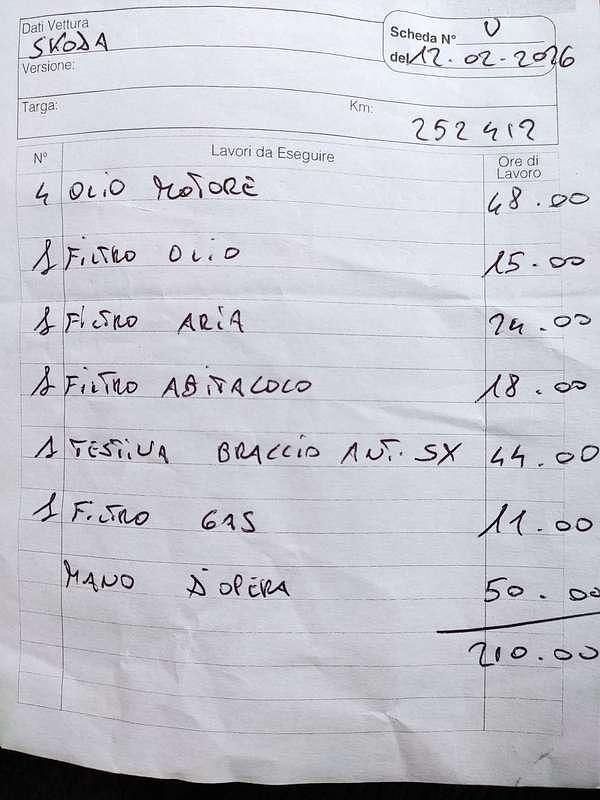 Dati Vettura
SKODA
Scheda N° U
del 12.02-2026
Versione:
Targa:
Km:
252412
N° Lavori da Eseguire Ore di Lavoro
4 OLIO MOTORE 48.00
1 FILTRO OLIO 15.00
1 FILTRO ARIA 24.00
1 FILTRO ABITACOLO 18.00
1 TESTINA BRACCIO ANT. SX 44.00
1 FILTRO GAS 11.00
MANO D'OPERA 50.00
210.00